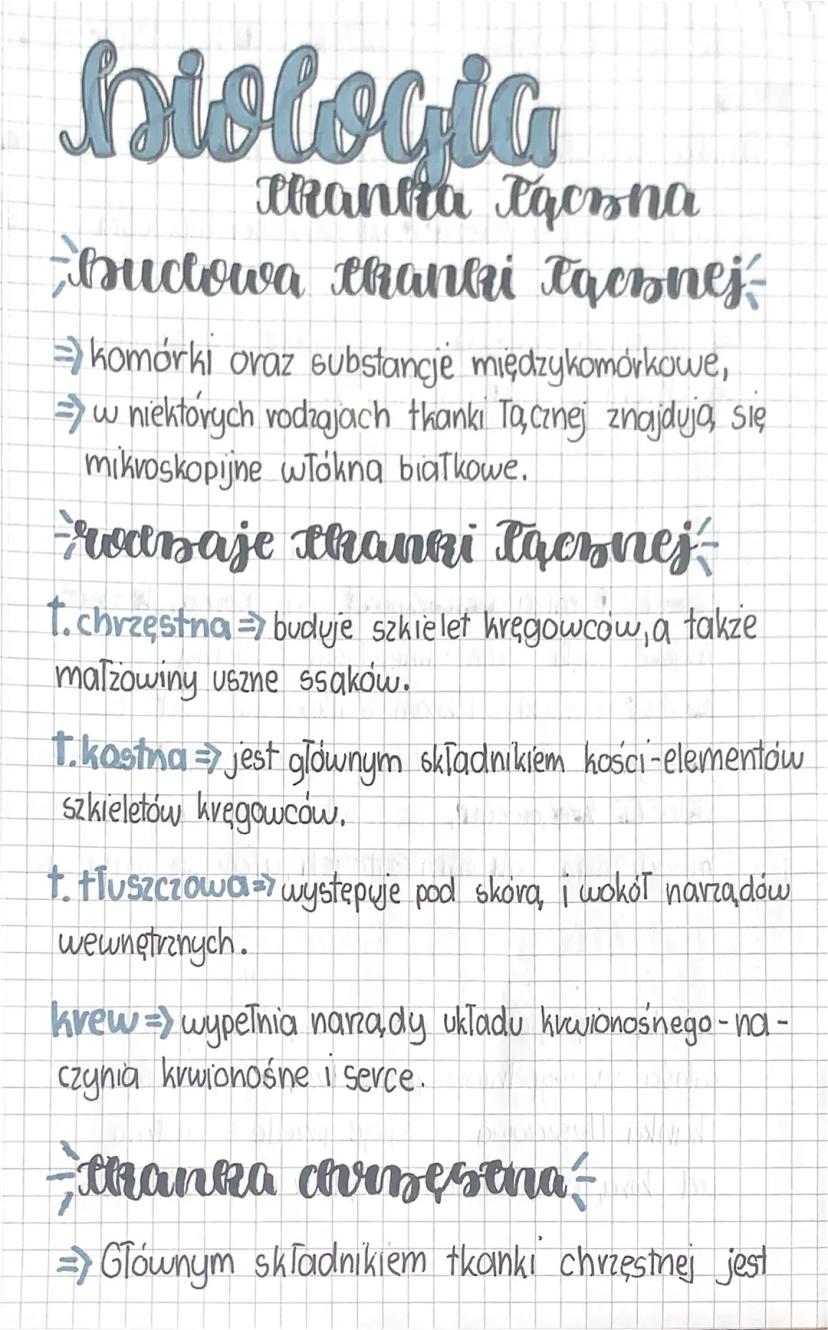 biologia
tkanka łączna
budowa tkanki łącznej
⇒ komórki oraz substancje międzykomórkowe,
⇒ w niektórych rodzajach tkanki łącznej znajdują się
mikroskopijne włókna białkowe.
rodzaje tkanki łącznej
t. chrzęstna ⇒ buduje szkielet kręgowców, a także
małżowiny uszne ssaków.
t. kostna ⇒ jest głównym składnikiem kości-elementów
szkieletów kręgowców.
t. tłuszczowa ⇒ występuje pod skórą i wokół narządów
wewnętrznych.
krew ⇒ wypełnia narządy układu krwionośnego - na-
czynia krwionośne i serce.
tkanka chrzęstna
⇒ Głównym składnikiem tkanki chrzęstnej jest